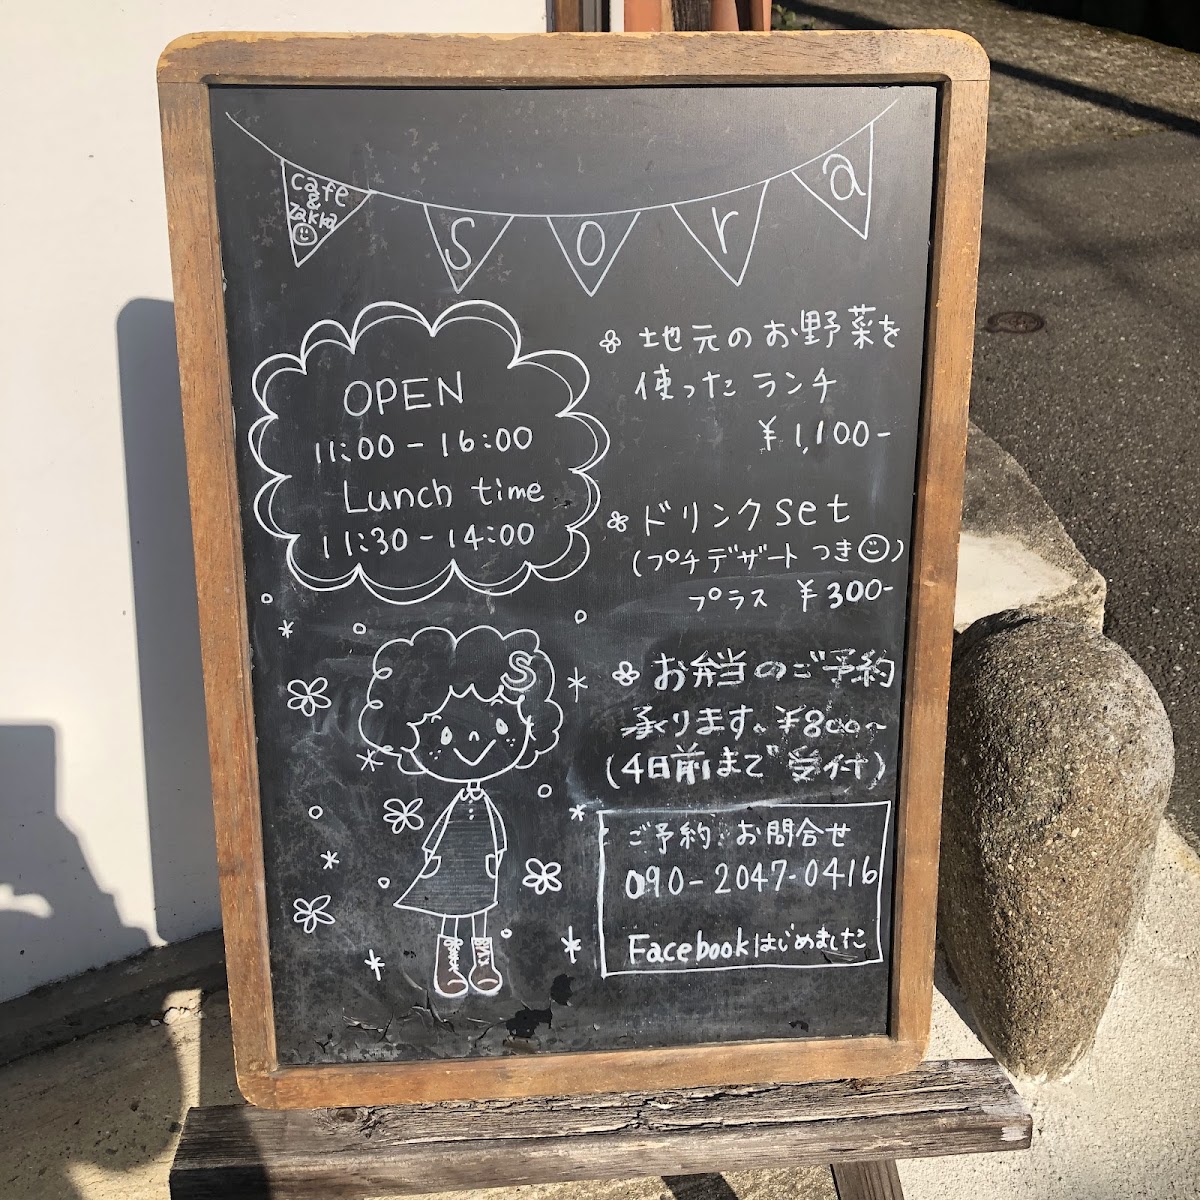 cafe
&
zakka
sora
OPEN
11:00-16:00
Lunch time
11:30-14:00
地元のお野菜を
使ったランチ
¥1,100-
ドリンクset
(プチデザートつき)
プラス ¥300-
お弁当のご予約
承ります。¥800~
(4日前まで受付)
S
ご予約、お問合せ
090-2047-0416
Facebookはじめました